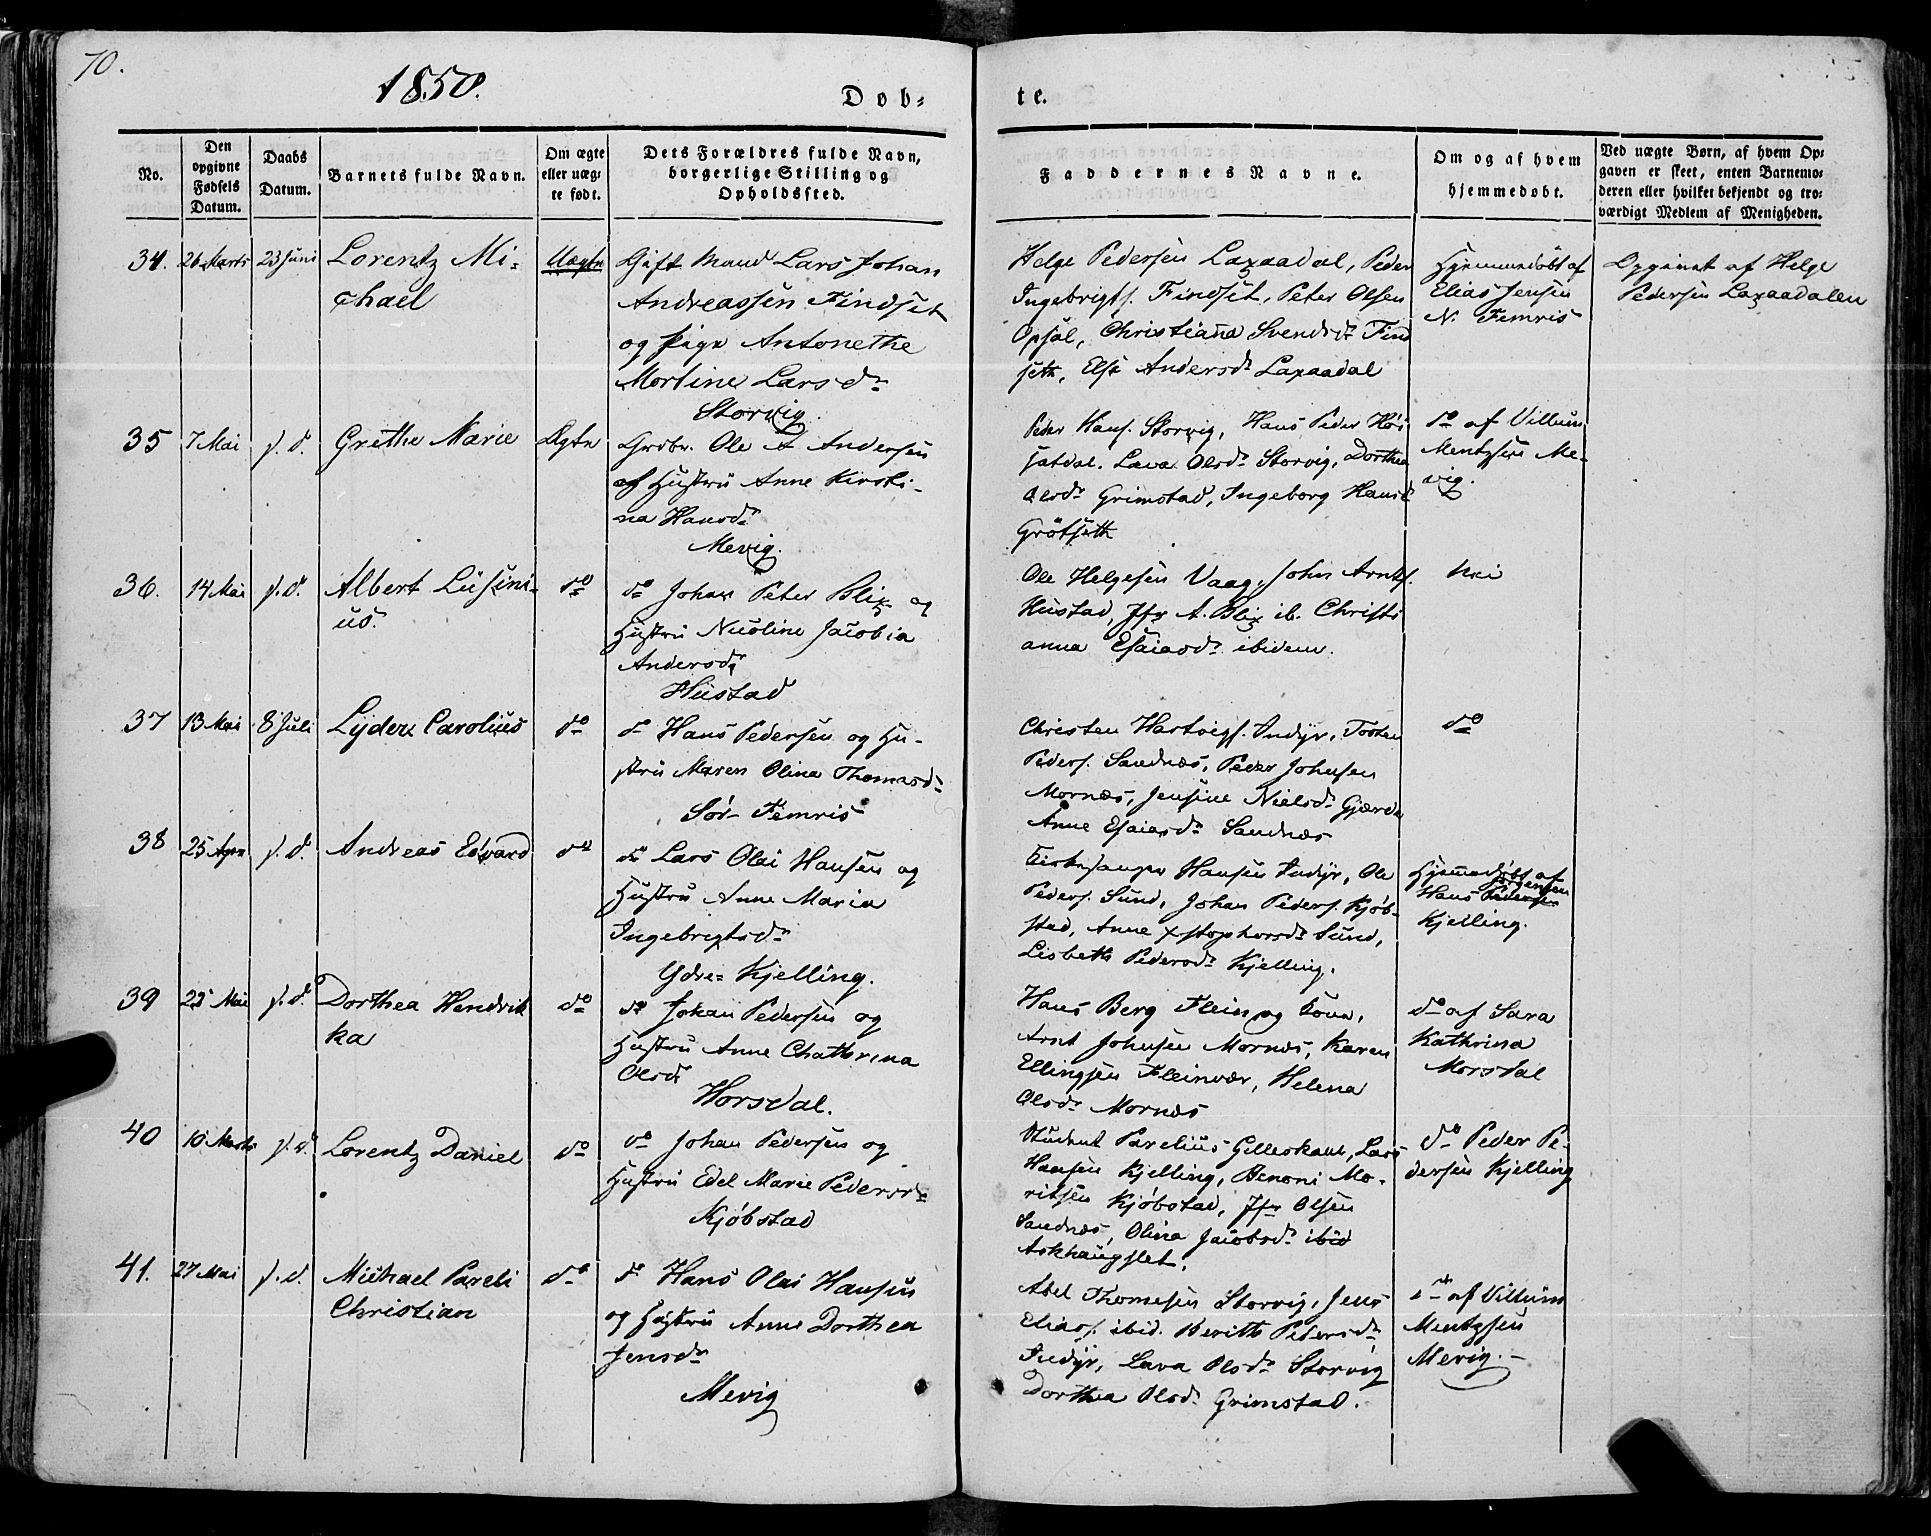 70.
1850.
Døb-
te.
No.
Den opgivne Fødsels Datum.
Daabs Datum.
Barnets fulde Navn.
Om ægte eller uægte født.
Dets Forældres fulde Navn, borgerlige Stilling og Opholdssted.
Faddernes Navne.
Om og af hvem hjemmedøbt.
Ved uægte Børn, af hvem Opgaven er skeet, enten Barnemoderen eller hvilket bekjendt og troværdigt Medlem af Menigheden.
34. 26 Marts 23 Juni Lorentz Mi-
chael
Uægte
Gift Mand Lars Johan
Andreassen Findset
og Pige Antonethe
Mortine Larsdr
Storvig.
Helge Pedersen Laxaadal, Peder
Ingebrigts. Findset, Peter Olsen
Opsal, Christiana Svendsdr Find
seth, Else Andersdr Laxaadal
Hjemmedøbt af
Elias Jensen
N. Femris
Opgivet af Helge
Pedersen Laxaadalen
35 7 Mai s. d. Grethe Marie
Ægte
Grdbr. Ole A Andersen
og Hustru Anne Kirsti-
na Hansdr
Mevig.
Peder Hans. Storvig, Hans Peder
Lava Olsdr Storvig, Dorthea
Olsdr Grimstad, Ingeborg Hansd
Grötseth
do af Villum
Mentzsen Me-
vig.
36. 14 Mai s. d. Albert Lüsini-
us.
do
do Johan Peter Blix og
Hustru Nicoline Jacobia
Andersdr
Hüstad
Ole Helgesen Vaag, John Arnts.
Hüstad, Jfr A. Blix ib. Christi
anna Esaiasdr ibidem.
Nei
37 13 Mai 8 Juli Lyder Carolius
do
do Hans Pedersen og Hu-
stru Maren Olina Thomasdr
Sör-Femris
Christen Hartvigs. Indyr, Tosten
Peders. Sandnæs, Peder Johnsen
Mornæs, Jensine Nielsdr Gjærd
Anne Esaiasdr Sandnæs
do
38 25 Apr s. d. Andreas Edvard
do
do Lars Olai Hansen og
Hustru Anne Maria
Ingebrigtsdr
Ydre-Kjelling.
Kirkesanger Hansen Indyr, Ole
Peders. Sund, Johan Peders. Kjöb-
stad, Anne Xstophersdr Sund,
Lisbeth Pedersdr Kjelling.
Hjemmedöbt af
Jörgensen
Hans Pedersen
Kjelling.
39 22 Mai s. d. Dorthea Hendrik
ka
do
do Johan Pedersen og
Hustru Anne Chathrina
Olsdr
Horsdal.
Hans Berg Flein og Kona,
Arnt Johnsen Mornæs, Karen
Ellingsen Fleinvær, Helena
Olsdr Mornæs
do af Sara
Kathrina
Morsdal
40 10 Marts s. d. Lorentz Daniel
do
do Johan Pedersen og
Hustru Edel Marie Pedersdr
Kjöbstad
Student Parelius Gilleskaal, Lars
Hansen Kjelling, Benoni Mo-
ritsen Kjöbstad, Jfr Olsen
Sandnæs, Olina Jacobsdr ibid
Askhaugslet.
do Peder Pe-
dersen Kjelling
41. 27 Mai s. d. Michael Pareli
Christian
do
do Hans Olai Hansen
og Hustru Anne Dorthea
Jensdr
Mevig
Abel Thomesen Storvig, Jens
Elias. ibid. Berith Pedersdr
Indyr, Lava Olsdr Storvig
Dorthea Olsdr Grimstad.
do af Villum
Mentzsen
Mevig.